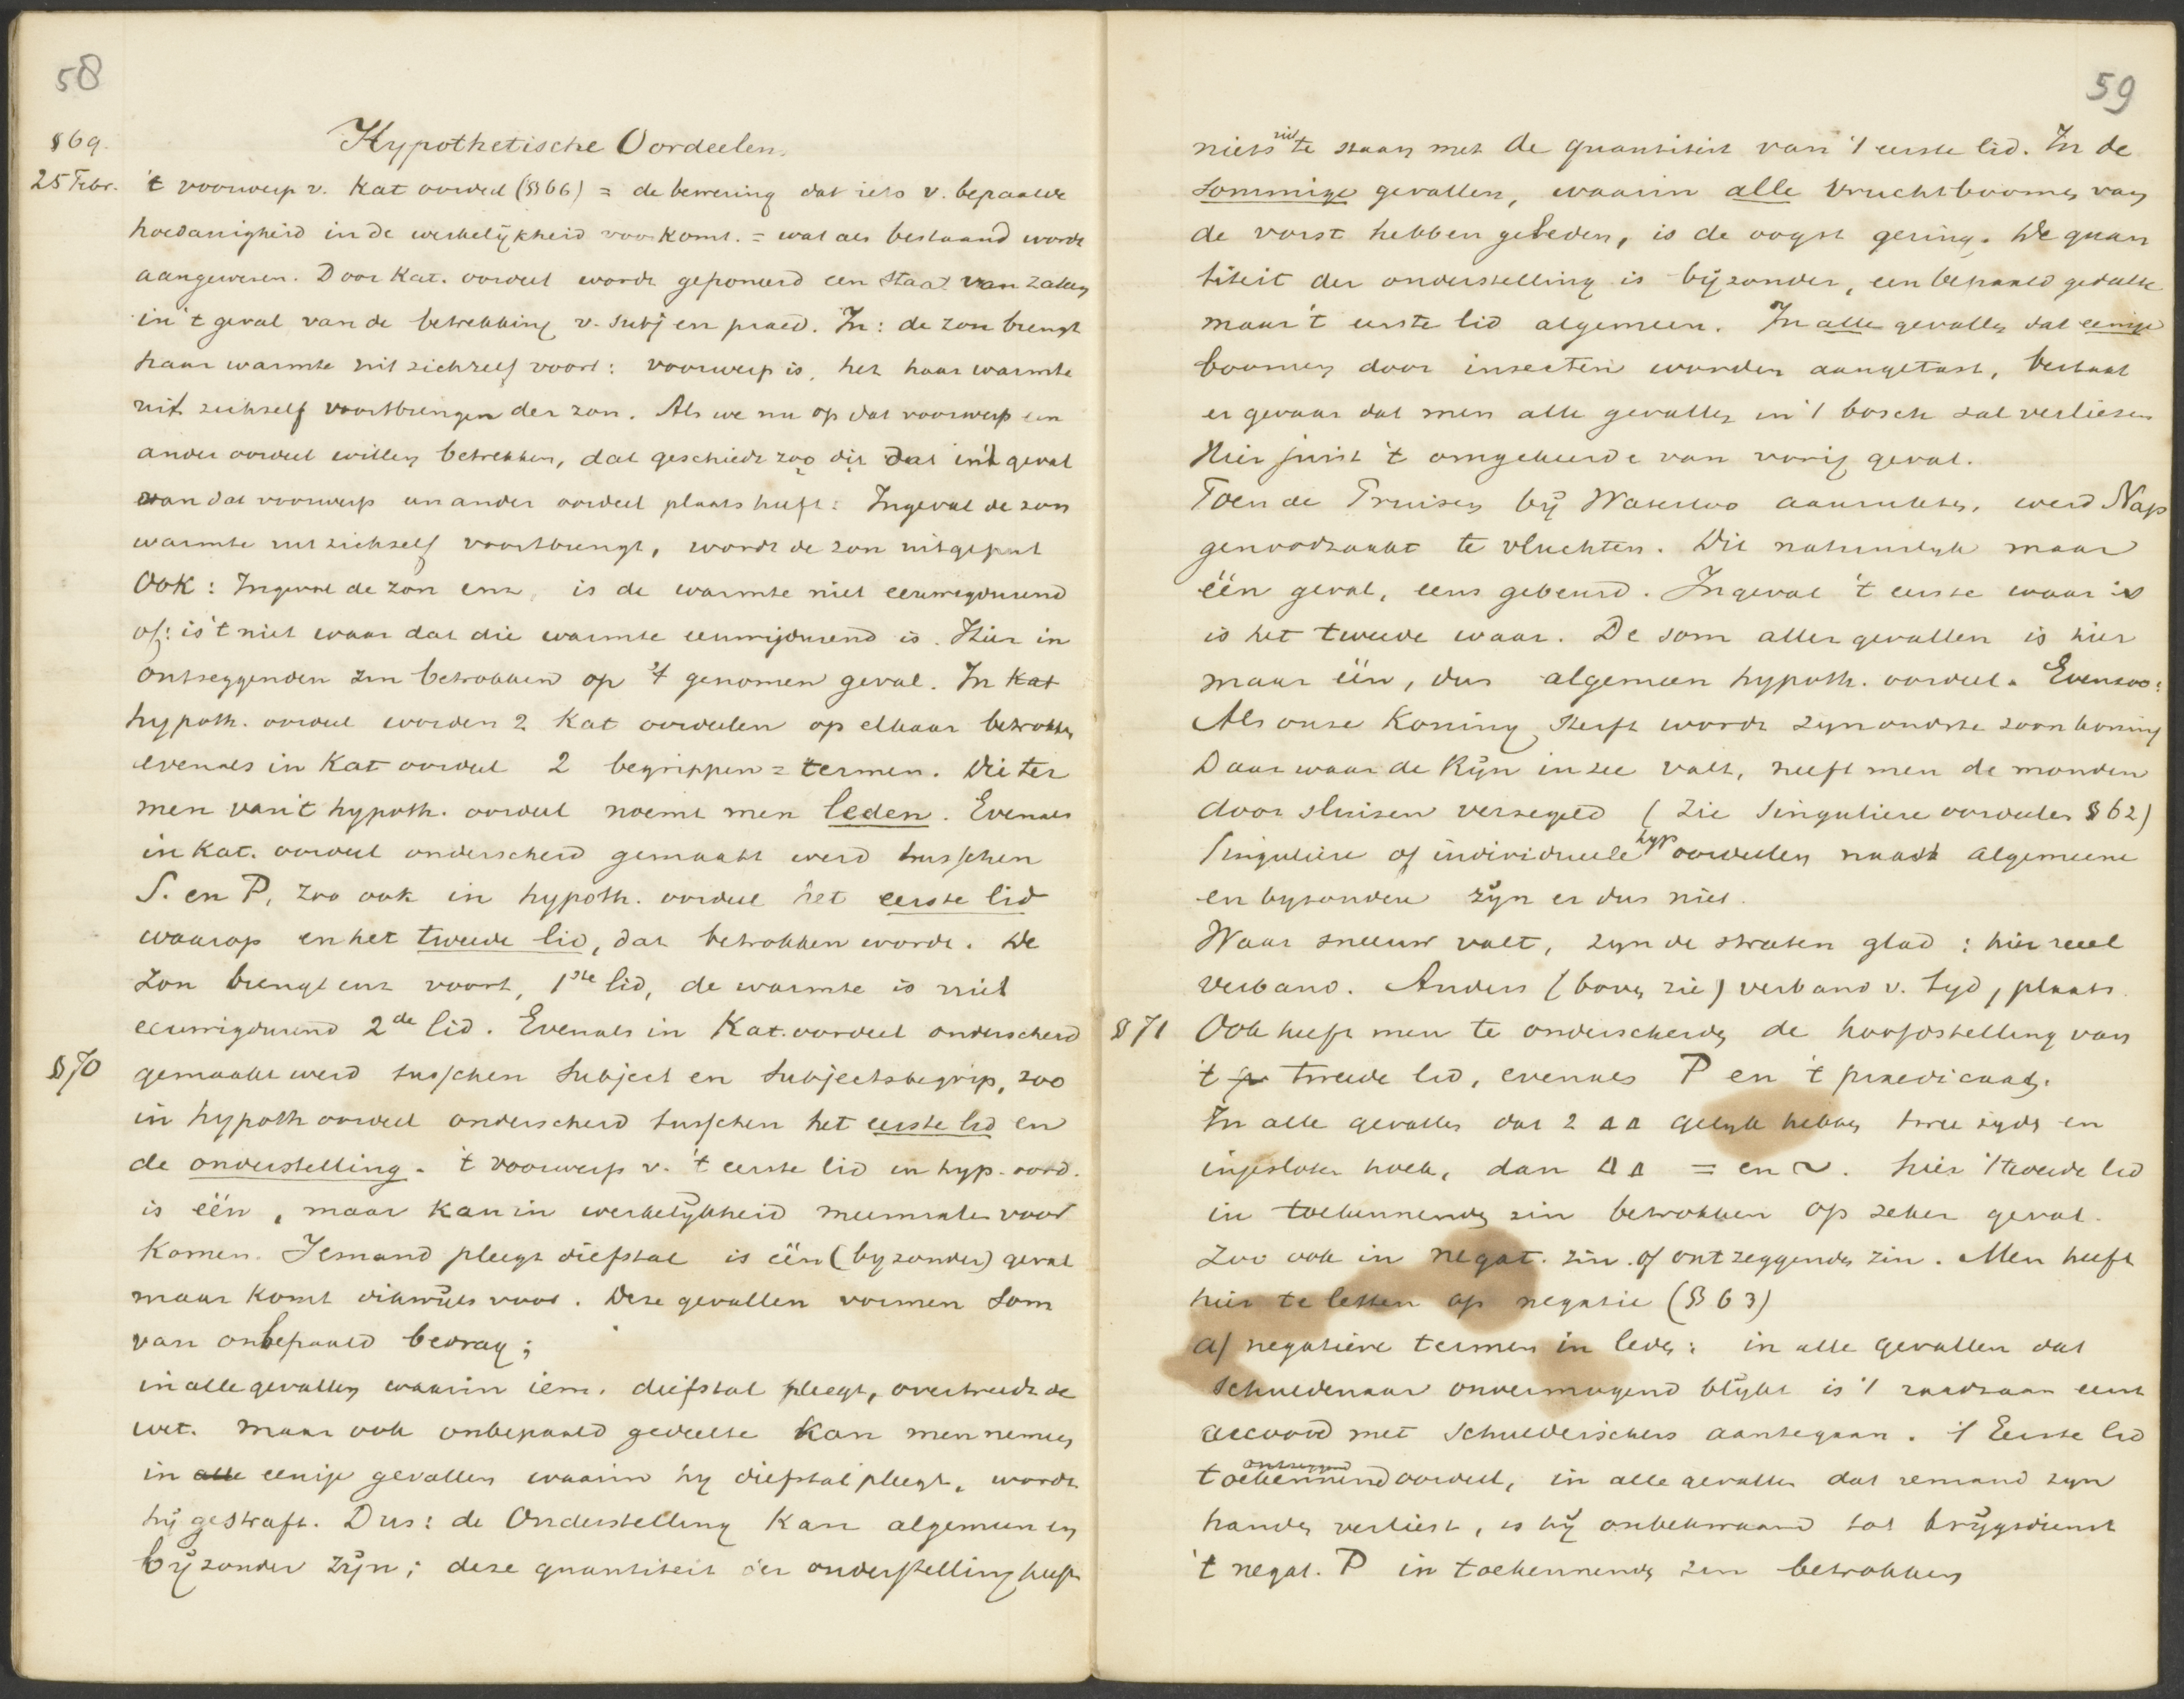 58
§69. Hypothetische Oordeelen.
25 Febr. 't voorwerp v. Kat oordeel (§66) = de bewering dat iets v. bepaalde
hoedanigheid in de werkelijkheid voorkomt. = wat als bestaand wordt
aangewezen. Door Kat. oordeel wordt geponeerd een Staat van zaken
in 't geval van de betrekking v. Subj en praed. In: de zon brengt
haar warmte uit zichzelf voort: voorwerp is, het haar warmte
uit zichzelf voortbrengen der zon. Als we nu op dat voorwerp een
ander oordeel willen betrekken, dat geschiedt zoo dit dat in 't geval
van dat voorwerp een ander oordeel plaats heeft: Ingeval de zon
warmte uit zichzelf voortbrengt, wordt de zon uitgeput
Ook: Ingeval de zon enz, is de warmte niet eeuwigdurend
of: is 't niet waar dat die warmte eeuwigdurend is. Hier in
ontzeggenden zin betrokken op 't genomen geval. In Kat
hypoth. oordeel worden 2 Kat oordeelen op elkaar betrokken
evenals in Kat oordeel 2 begrippen = termen. Die ter
men van 't hypoth. oordeel noemt men leden. Evenals
in Kat. oordeel onderscheid gemaakt werd tusschen
S. en P, zoo ook in hypoth. oordeel het eerste lid
waarop en het tweede lid, dat betrokken wordt. De
zon brengt enz voort, 1ste lid, de warmte is niet
eeuwigdurend 2de lid. Evenals in Kat. oordeel onderscheid
§70 gemaakt werd tusschen Subject en Subjectsbegrip, zoo
in hypoth oordeel onderscheid tusschen het eerste lid en
de onderstelling. 't voorwerp v. 't eerste lid in hyp. oord.
is één, maar kan in werkelijkheid meermalen voor
komen. Iemand pleegt diefstal is één (byzonder) geval
maar komt dikwijls voor. Deze gevallen vormen Som
van onbepaald bedrag;
in alle gevallen waarin iem. diefstal pleegt, overtreedt de
wet. maar ook onbepaald gedeelte kan men nemen
in alle eenige gevallen waarin hy diefstal pleegt, wordt
hij gestraft. Dus: de Onderstelling kan algemeen en
bijzonder zijn; deze quantiteit der onderstelling heeft
59
niets uit te staan met de quantiteit van 't eerste lid. In de
sommige gevallen, waarin alle vruchtboomen van
de vorst hebben geleden, is de oogst gering. De quan
titeit der onderstelling is bijzonder, een bepaald gedeelte
maar 't eerste lid algemeen. In alle gevallen dat eenige
boomen door insecten worden aangetast, bestaat
er gevaar dat men alle gevallen in 't bosch zal verliezen
Hier juist 't omgekeerde van vorig geval.
Toen de Pruisen bij Waterloo aanrukten, werd Nap
genoodzaakt te vluchten. Dit natuurlyk maar
één geval, eens gebeurd. Ingeval 't eerste waar is
is het tweede waar. De som aller gevallen is hier
maar één, dus algemeen hypoth. oordeel. Evenzoo:
Als onze Koning sterft wordt zyn oudste zoon koning
Daar waar de Rijn in zee valt, heeft men de monden
door sluizen verzegeld (zie Singuliere oordeelen §62)
Singuliere of individueele hyp oordeelen naast algemeene
en byzondere zijn er dus niet.
Waar sneeuw valt, zyn de straten glad: hier reeel
verband. Anders (boven zie) verband v. tyd, plaats.
§71 Ook heeft men te onderscheiden de hoofdstelling van
't tweede lid, evenals P en 't praedicaat.
In alle gevallen dat 2 ΔΔ gelyk hebben twee zyden en
ingesloten hoek, dan ΔΔ = en ~. hier 't tweede lid
in toekennenden zin betrokken op zeker geval.
Zoo ook in negat. zin. of ontzeggenden zin. Men heeft
hier te letten op negatie (§63)
a) negatieve termen in leden: in alle gevallen dat
Schuldenaar onvermogend blijkt is 't raadzaam een
accoord met Schuldeischers aantegaan. 't Eerste lid
ontzeggend
toekennend oordeel, in alle gevallen dat iemand zyn
handen verliest, is hij onbekwaam tot krijgsdienst
't negat. P in toekennenden zin betrokken